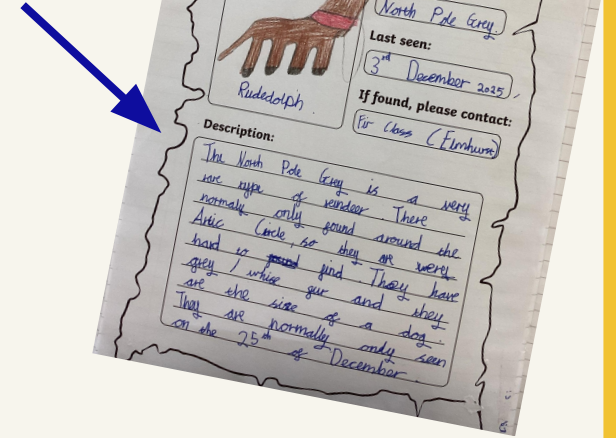 North Pole Grey.
Last seen:
3rd December 2025,
If found, please contact:
Fir Class (Elmhurst)
Rudedolph.
Description:
The North Pole Grey is a very
rare type of reindeer. There
normaly only found around the
Artic Circle, so they are very
hard to find. They have
grey / white fur and they
are the size of a dog.
They are normally only seen
on the 25th of December.